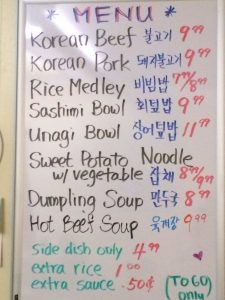 * MENU *
Korean Beef 불고기 9.99
Korean Pork 돼지불고기 9.99
Rice Medley 비빔밥 7.99/8.99
Sashimi Bowl 회덮밥 9.99
Unagi Bowl 장어덮밥 11.99
Sweet Potato Noodle
w/ vegetable 잡채 8.99/9.99
Dumpling Soup 만두국 8.99
Hot Beef Soup 육계장 9.99
side dish only 4.99
extra rice 1.00
extra sauce .50¢
(TO GO only)